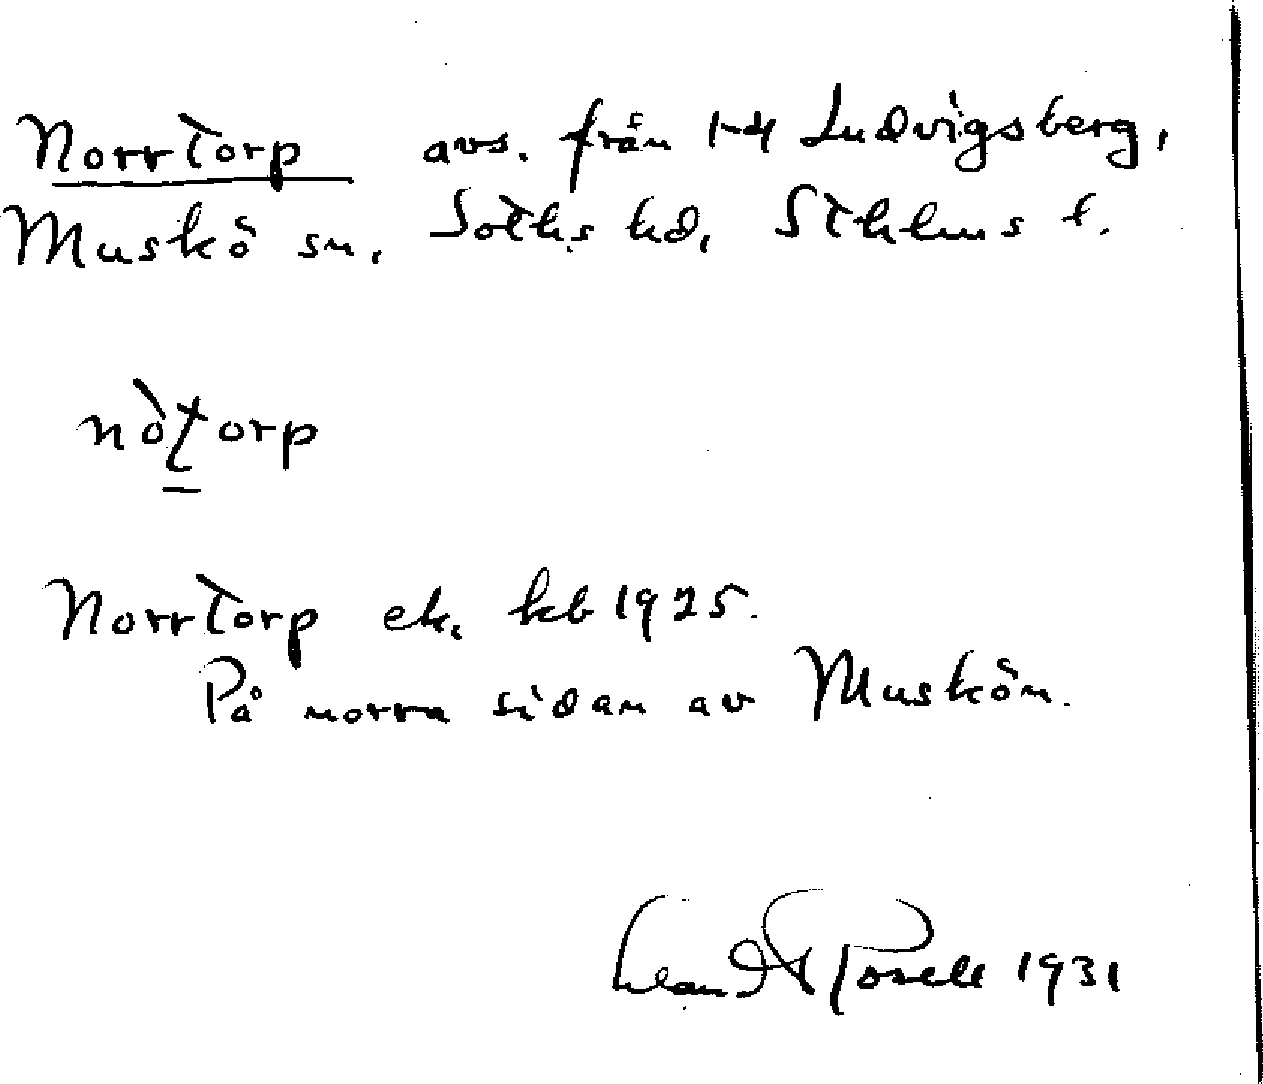 Norrtorp avs. från 1-4 Ludvigsberg,
Muskö sn, Soth.s hd, Sthlms l.
nòtorp
Norrtorp ek. kb 1925.
På norra sidan av Muskön.
1931